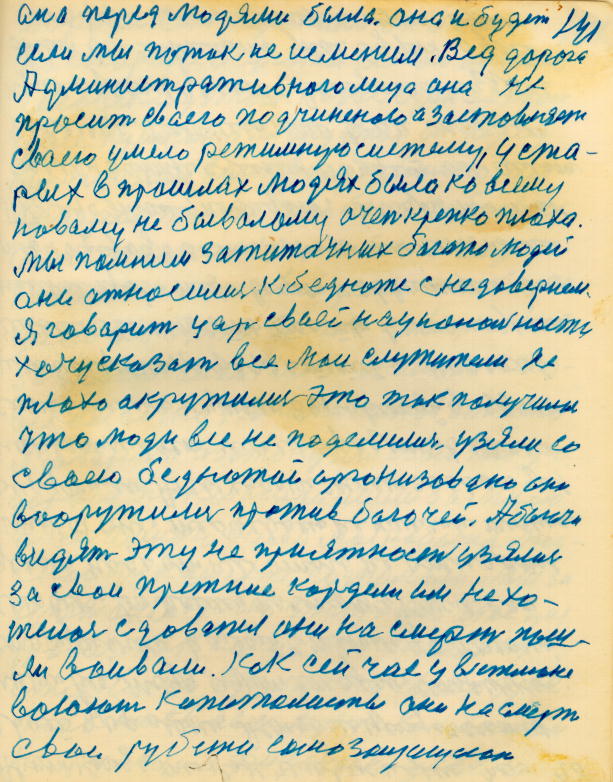 она перед людями была. она и будет 141
если мы поток не изменим. Вед дорога
Административного лица она не
просит своего подчиненого а заставляет
своего умело режимную систему, у ста-
рых в прошлах людях было ко всему
новаму не бывалому очен крепко плоха.
мы помним зажиточных богато людей
они относилися к бедноте с недоверием.
Я говорит цар своей нацыональности
хочу сказат все мои служители не
плохо акружилис это так получилос
что люди все не поделилис, узяли со
своею беднатой организовано они
вооружилис против богачей. А богачи
видят эту не приятност узялис
за свои прежние кардели им не хо-
телос сдаватся они на смерт пош-
ли воивали. Как сей час у вьетнаме
воюют капиталисты они на смерт
свои рубежи